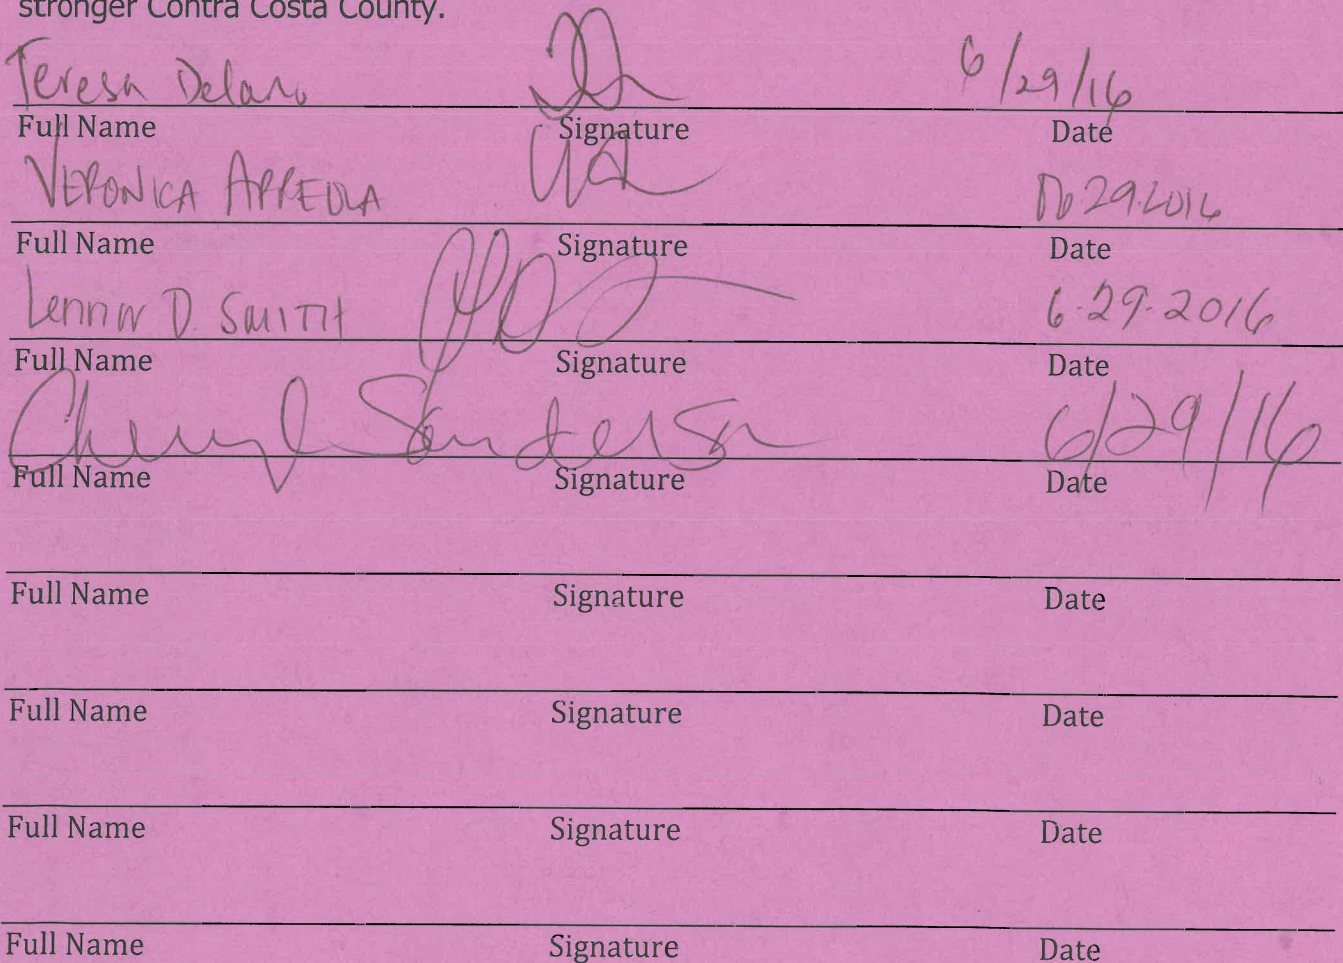 stronger Contra Costa County.
Teresa Delano 6/29/16
Full Name Signature Date
VERONICA ARREOLA 29.2016
Full Name Signature Date
Lennor D. SMITH 6-29-2016
Full Name Signature Date
Cheryl Sanderson 6/29/16
Full Name Signature Date
Full Name Signature Date
Full Name Signature Date
Full Name Signature Date
Full Name Signature Date